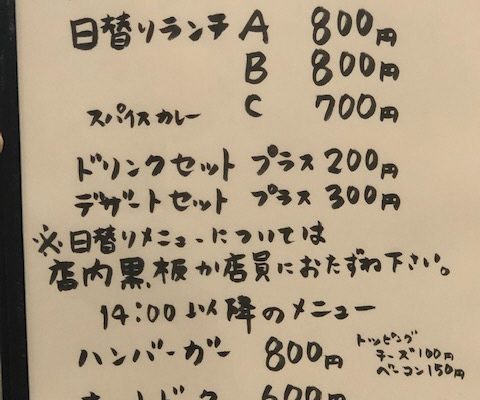 日替りランチ A 800円
B 800円
スパイスカレー C 700円
ドリンクセット プラス 200円
デザートセット プラス 300円
※日替りメニューについては
店内黒板か店員におたずね下さい。
14:00以降のメニュー
ハンバーガー 800円
トッピング
チーズ100円
ベーコン150円